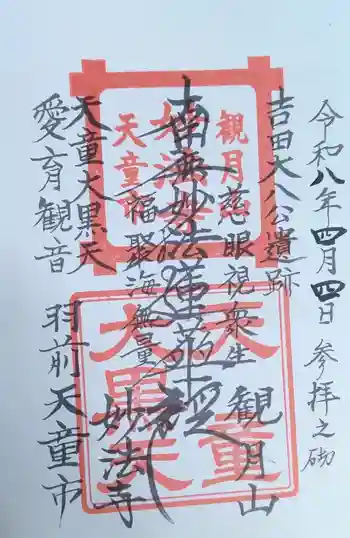 令和八年四月四日 参拝之砌
吉田大八公遺跡
慈眼視衆生
観月山
南無妙法蓮華経
福聚海無量
妙法寺
天童大黒天
愛育観音
羽前天童市
観月山
妙法寺
天童市
天童
大黒天